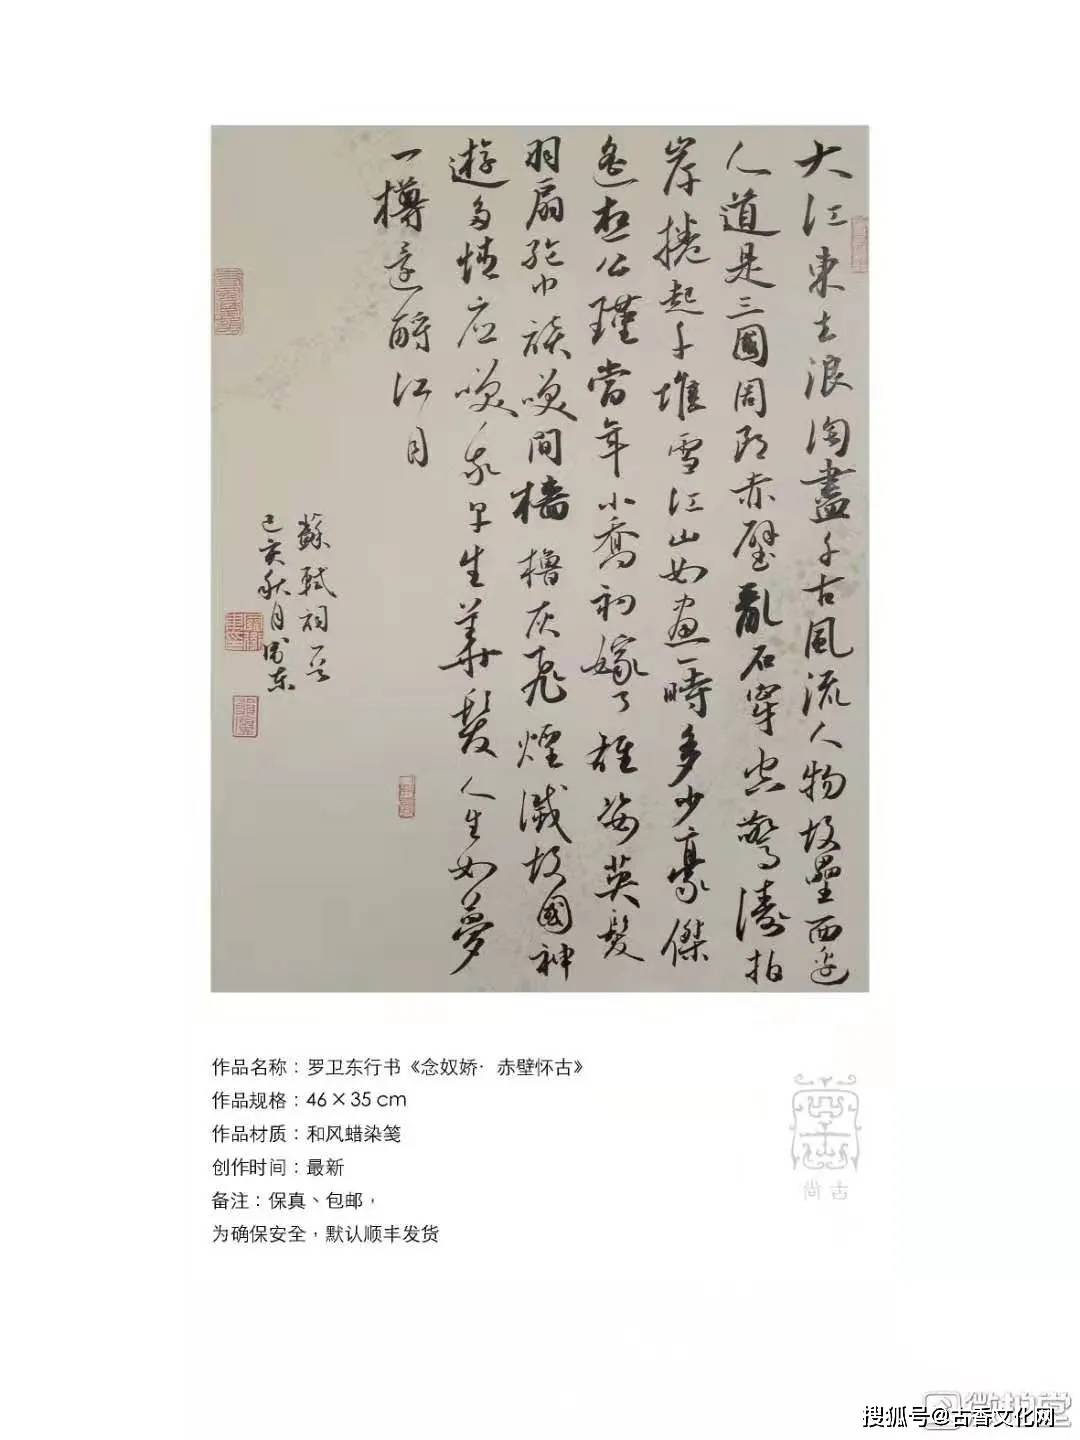 大江東去浪淘盡千古風流人物故壘西邊
人道是三國周郎赤壁亂石穿空驚濤拍
岸捲起千堆雪江山如畫一時多少豪傑
遙想公瑾當年小喬初嫁了雄姿英發
羽扇綸巾談笑間檣櫓灰飛煙滅故國神
遊多情應笑我早生華髮人生如夢
一樽還酹江月
蘇軾詞一首
己亥秋月衛東
作品名称：罗卫东行书《念奴娇·赤壁怀古》
作品规格：46×35 cm
作品材质：和风蜡染笺
创作时间：最新
备注：保真、包邮，
为确保安全，默认顺丰发货
尚古
微拍堂
搜狐号@古香文化网